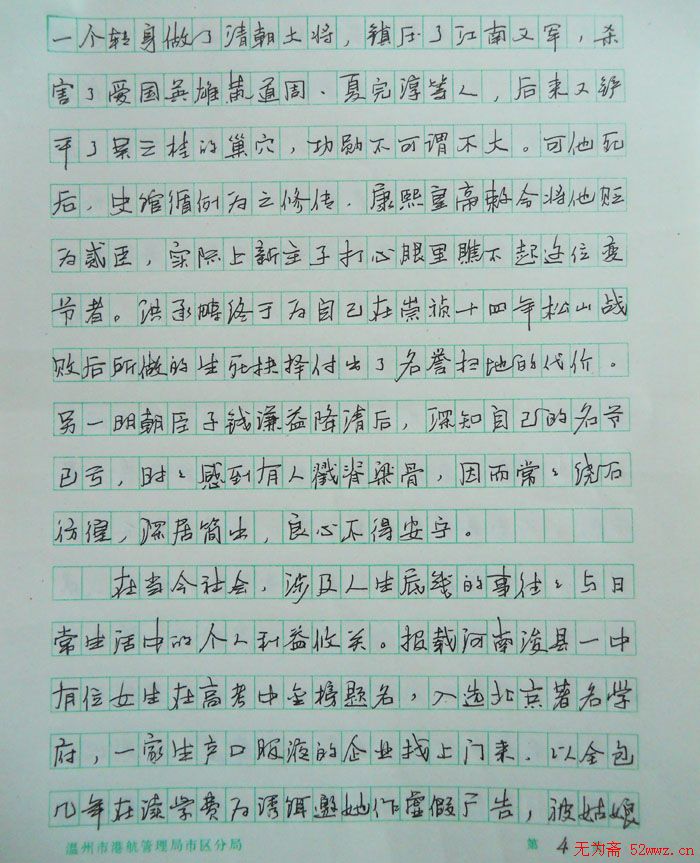 一个转身做了清朝大将，镇压了江南义军，杀
害了爱国英雄黄道周、夏完淳等人，后来又铲
平了吴三桂的巢穴，功勋不可谓不大。可他死
后，史馆循例为之修传，康熙皇帝敕令将他贬
为贰臣，实际上新主子打心眼里瞧不起这位变
节者。洪承畴终于为自己在崇祯十四年松山战
败后所做的生死抉择付出了名誉扫地的代价。
另一明朝臣子钱谦益降清后，深知自己的名节
已亏，时々感到有人戳脊梁骨，因而常々绕石
彷徨，深居简出，良心不得安宁。
在当今社会，涉及人生底线的事往々与日
常生活中的个人利益攸关。报载河南浚县一中
有位女生在高考中金榜题名，入选北京著名学
府，一家生产口服液的企业找上门来，以全包
几年在读学费为诱饵邀她作虚假广告，被姑娘
温州市港航管理局市区分局
第 4
无为斋 52wwz.cn